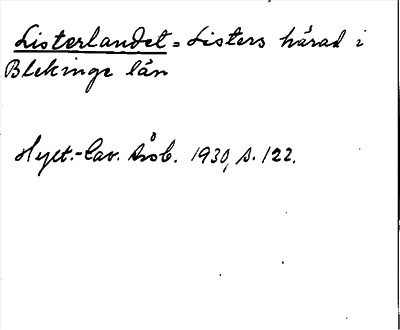 Listerlandet = Listers härad i
Blekinge län
Hylt.-Cav. Års b. 1930, s. 122.